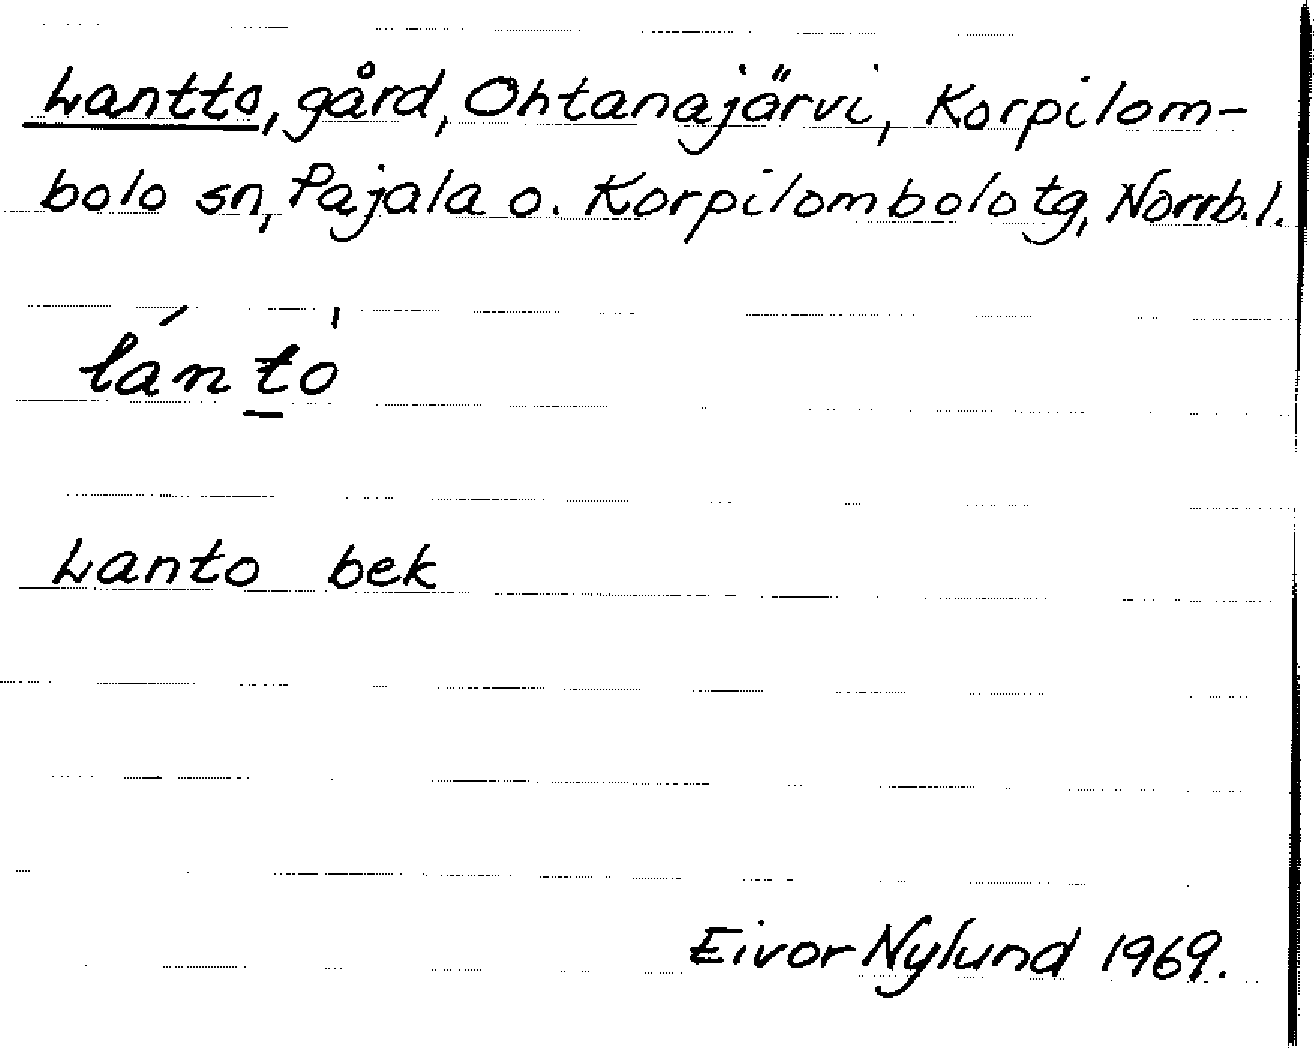 Lantto, gård, Ohtanajärvi, Korpilom-
bolo sn, Pajala o. Korpilombolo tg, Norrb. l.
lánt̲ò
Lanto bek
Eivor Nylund 1969.